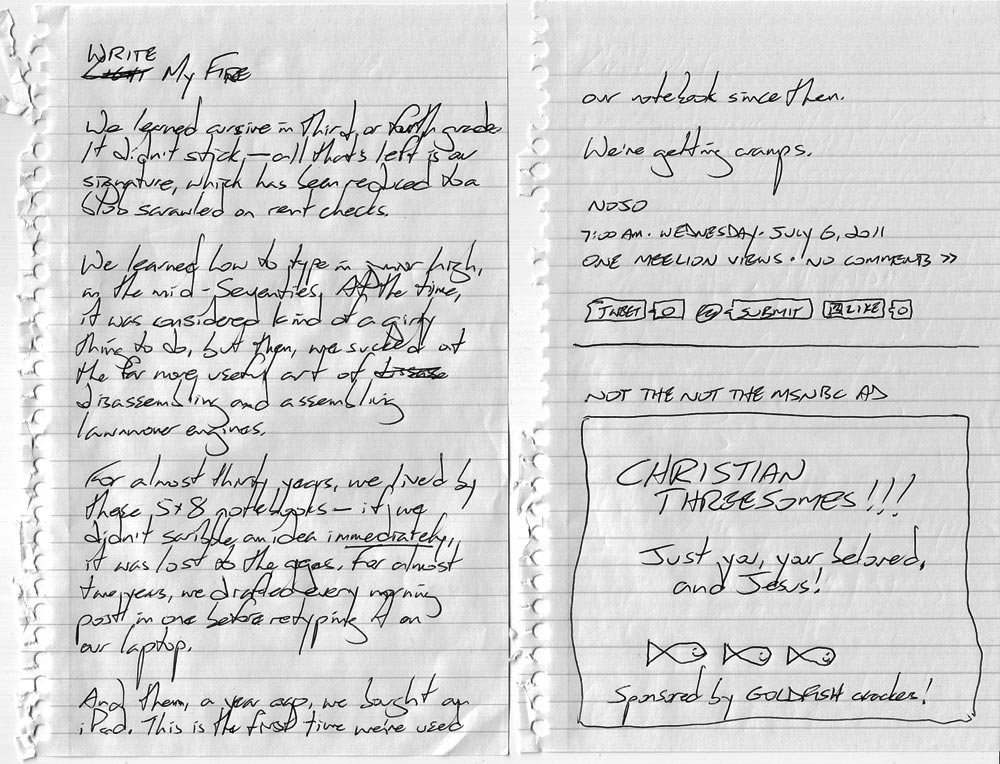 WRITE
LIGHT My FIRE
We learned cursive in third or fourth grade.
It didn't stick — all that's left is our
signature, which has been reduced to a
blob scrawled on rent checks.
We learned how to type in junior high,
in the mid-Seventies. At the time,
it was considered kind of a girly
thing to do, but then, we sucked at
the far more useful art of
disassembling and assembling
lawnmower engines.
For almost thirty years, we lived by
these 5x8 notebooks — if we
didn't scribble an idea immediately,
it was lost to the ages. For almost
two years, we drafted every morning
post in one before retyping it on
our laptop.
And then, a year ago, we bought an
iPad. This is the first time we've used
our notebook since then.
We're getting cramps.
NOJO
7:00 AM · WEDNESDAY · JULY 6, 2011
ONE MEELION VIEWS · NO COMMENTS >>
TWEET 0 SUBMIT LIKE 0
NOT THE NOT THE MSNBC AD
CHRISTIAN
THREESOMES!!!
Just you, your beloved,
and Jesus!
Sponsored by GOLDFISH crackers!